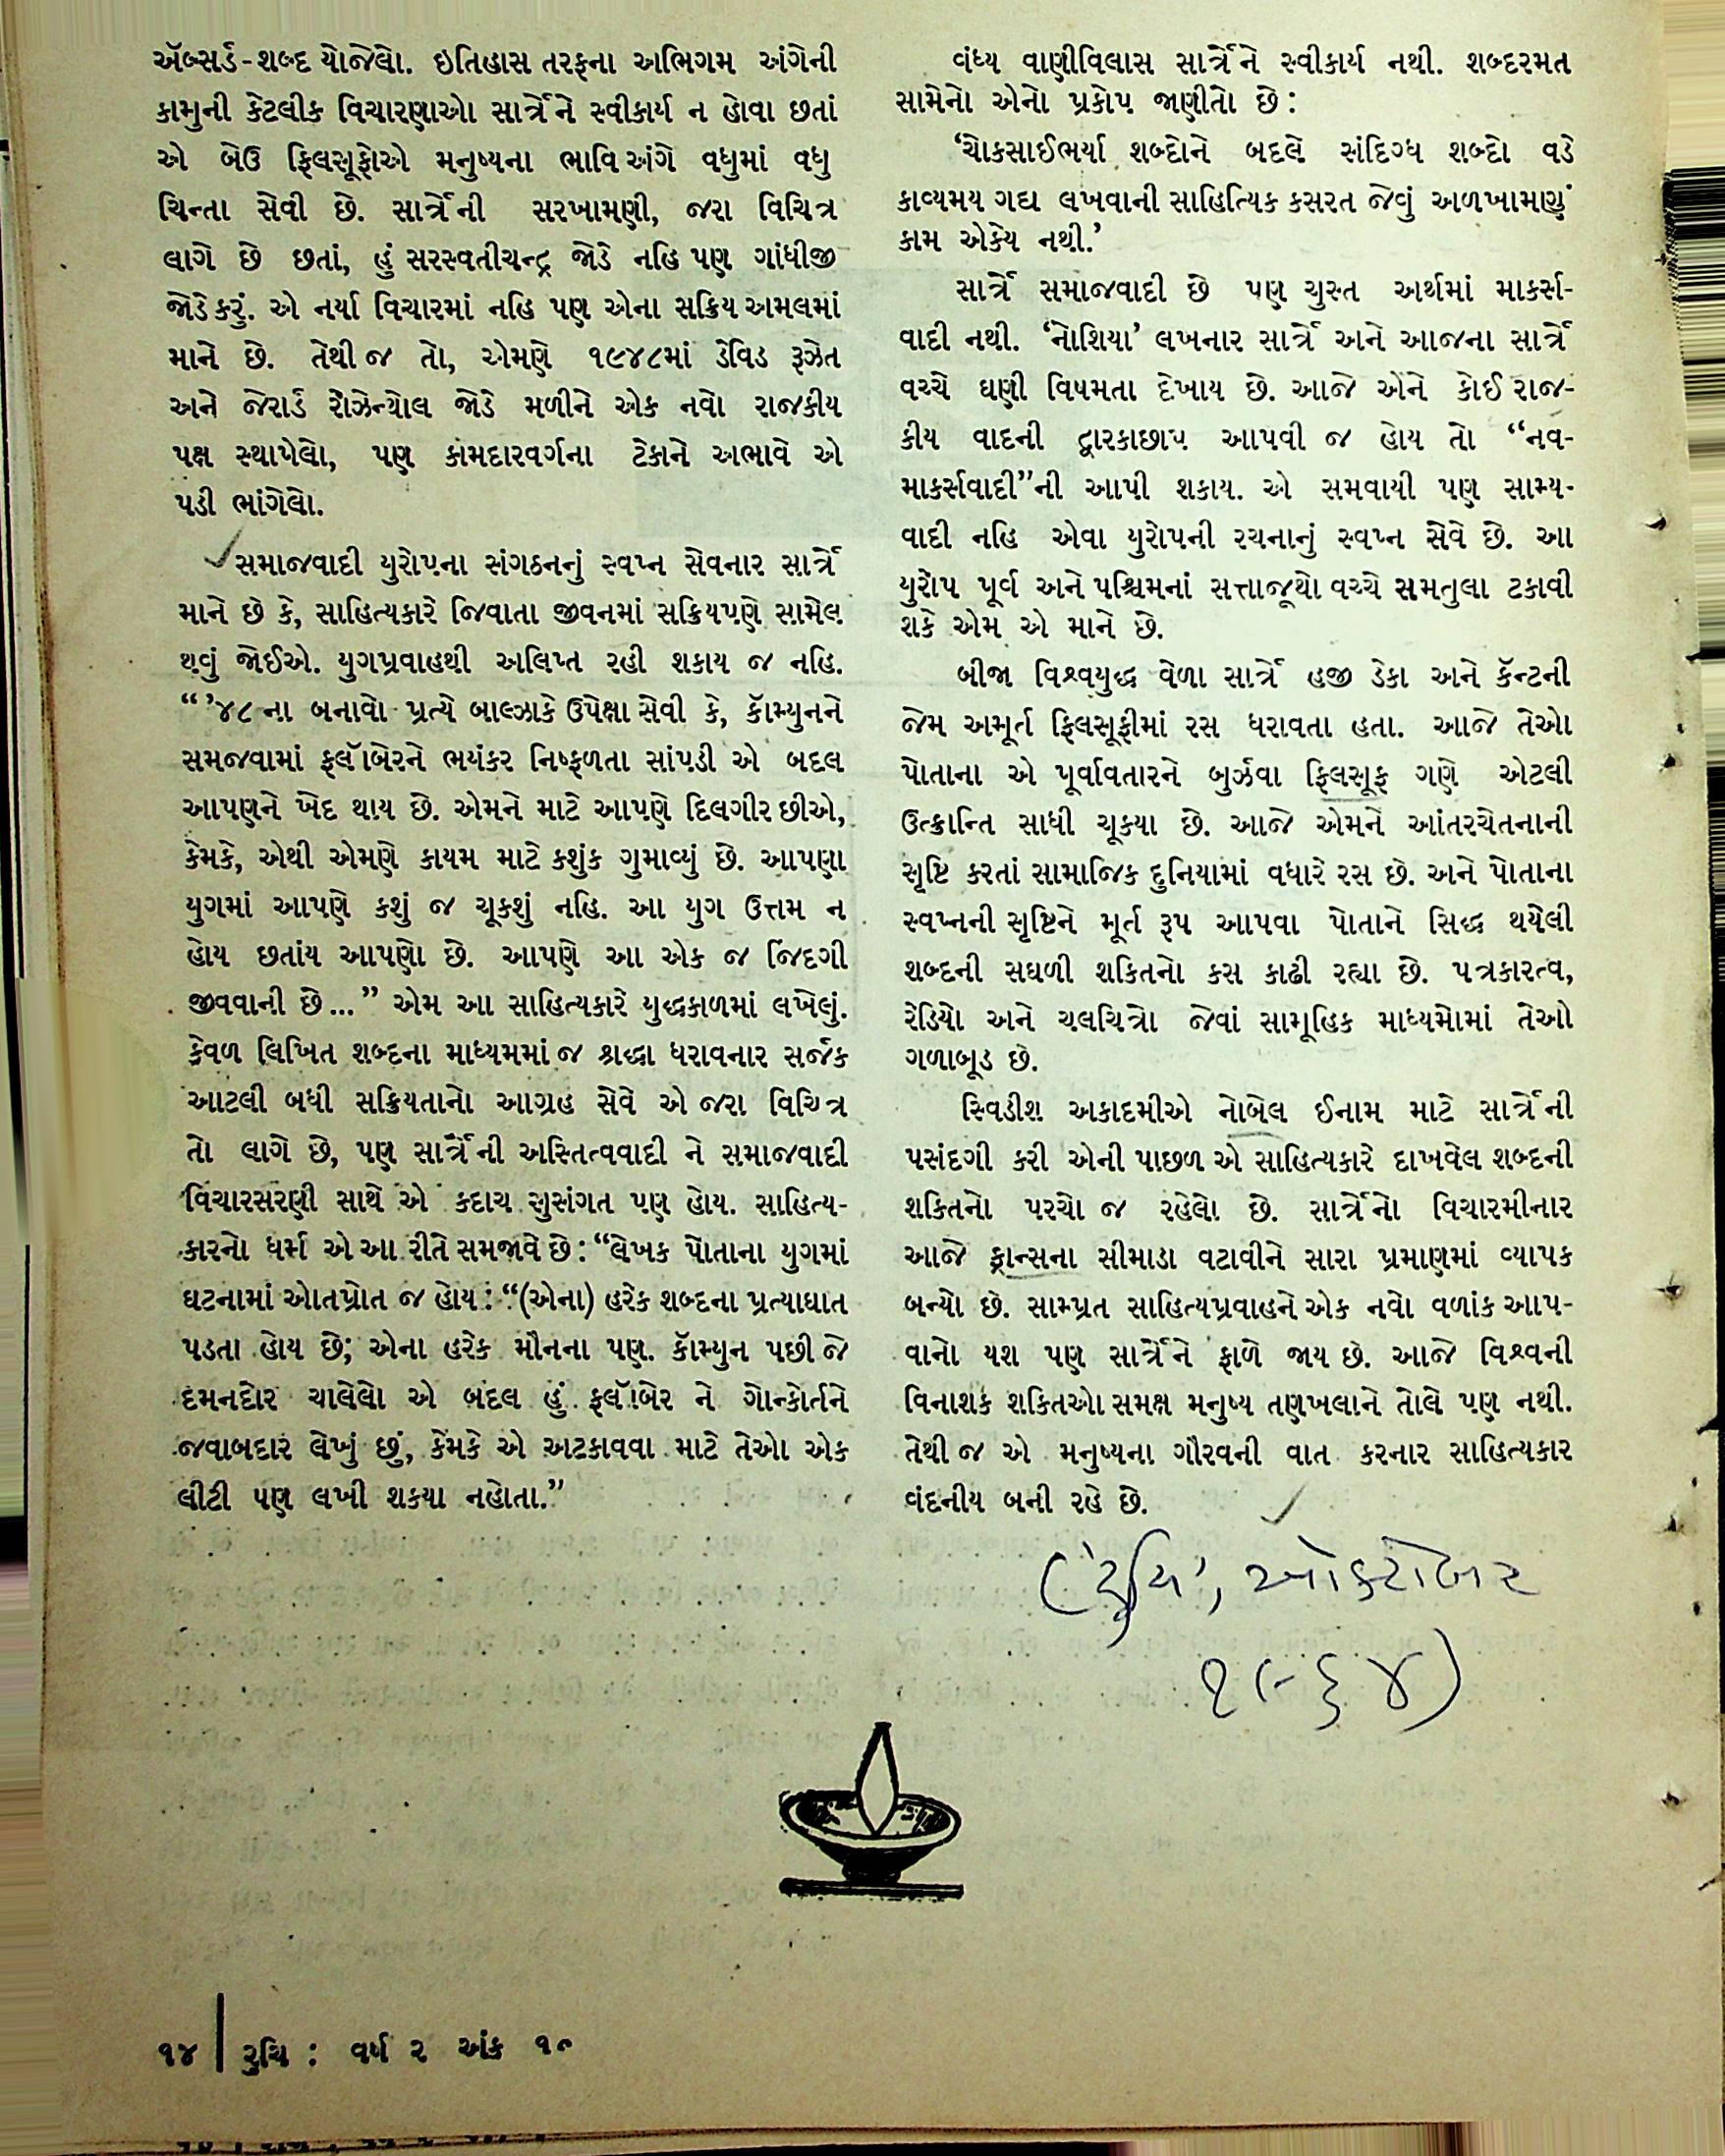 ઍબ્સર્ડ-શબ્દ યોજેલો. ઇતિહાસ તરફના અભિગમ અંગેની
કામુની કેટલીક વિચારણાઓ સાર્ત્રેને સ્વીકાર્ય ન હોવા છતાં
એ બેઉ ફિલસૂફોએ મનુષ્યના ભાવિ અંગે વધુમાં વધુ
ચિન્તા સેવી છે. સાર્ત્રેની સરખામણી, જરા વિચિત્ર
લાગે છે છતાં, હું સરસ્વતીચન્દ્ર જોડે નહિ પણ ગાંધીજી
જોડે કરું. એ નર્યા વિચારમાં નહિ પણ એના સક્રિય અમલમાં
માને છે. તેથી જ તો, એમણે ૧૯૪૮માં ડેવિડ રૂઝેત
અને જેરાર્ડ રોઝેન્થોલ જોડે મળીને એક નવો રાજકીય
પક્ષ સ્થાપેલો, પણ કામદારવર્ગના ટેકાને અભાવે એ
પડી ભાંગેલો.
સમાજવાદી યુરોપના સંગઠનનું સ્વપ્ન સેવનાર સાર્ત્રે
માને છે કે, સાહિત્યકારે જિવાતા જીવનમાં સક્રિયપણે સામેલ
થવું જોઈએ. યુગપ્રવાહથી અલિપ્ત રહી શકાય જ નહિ.
“ ’૪૮ના બનાવો પ્રત્યે બાલ્ઝાકે ઉપેક્ષા સેવી કે, કૉમ્યુનને
સમજવામાં ફ્લૉબેરને ભયંકર નિષ્ફળતા સાંપડી એ બદલ
આપણને ખેદ થાય છે. એમને માટે આપણે દિલગીર છીએ,
કેમકે, એથી એમણે કાયમ માટે કશુંક ગુમાવ્યું છે. આપણા
યુગમાં આપણે કશું જ ચૂકશું નહિ. આ યુગ ઉત્તમ ન
હોય છતાંય આપણો છે. આપણે આ એક જ જિંદગી
જીવવાની છે...” એમ આ સાહિત્યકારે યુદ્ધકાળમાં લખેલું.
કેવળ લિખિત શબ્દના માધ્યમમાં જ શ્રદ્ધા ધરાવનાર સર્જક
આટલી બધી સક્રિયતાનો આગ્રહ સેવે એ જરા વિચિત્ર
તો લાગે છે, પણ સાર્ત્રેની અસ્તિત્વવાદી ને સમાજવાદી
વિચારસરણી સાથે એ કદાચ સુસંગત પણ હોય. સાહિત્ય-
કારનો ધર્મ એ આ રીતે સમજાવે છે : “લેખક પોતાના યુગમાં
ઘટનામાં ઓતપ્રોત જ હોય : “(એના) હરેક શબ્દના પ્રત્યાઘાત
પડતા હોય છે; એના હરેક મૌનના પણ. કૉમ્યુન પછી જે
દમનદોર ચાલેલો એ બદલ હું ફ્લૉબેર ને ગોન્કોર્તને
જવાબદાર લેખું છું, કેમકે એ અટકાવવા માટે તેઓ એક
લીટી પણ લખી શકયા નહોતા.”
વંધ્ય વાણીવિલાસ સાર્ત્રેને સ્વીકાર્ય નથી. શબ્દરમત
સામેનો એનો પ્રકોપ જાણીતો છે :
‘ચોકસાઈભર્યા શબ્દોને બદલે સંદિગ્ધ શબ્દો વડે
કાવ્યમય ગદ્ય લખવાની સાહિત્યિક કસરત જેવું અળખામણું
કામ એકેય નથી.’
સાર્ત્રે સમાજવાદી છે પણ ચુસ્ત અર્થમાં માર્ક્સ-
વાદી નથી. ‘નોશિયા’ લખનાર સાર્ત્રે અને આજના સાર્ત્રે
વચ્ચે ઘણી વિષમતા દેખાય છે. આજે એને કોઈ રાજ-
કીય વાદની દ્વારકાછાપ આપવી જ હોય તો “નવ-
માર્ક્સવાદી”ની આપી શકાય. એ સમવાયી પણ સામ્ય-
વાદી નહિ એવા યુરોપની રચનાનું સ્વપ્ન સેવે છે. આ
યુરોપ પૂર્વ અને પશ્ચિમનાં સત્તાજૂથો વચ્ચે સમતુલા ટકાવી
શકે એમ એ માને છે.
બીજા વિશ્વયુદ્ધ વેળા સાર્ત્રે હજી ડેકા અને કૅન્ટની
જેમ અમૂર્ત ફિલસૂફીમાં રસ ધરાવતા હતા. આજે તેઓ
પોતાના એ પૂર્વાવતારને બુર્ઝવા ફિલસૂફ ગણે એટલી
ઉત્ક્રાન્તિ સાધી ચૂકયા છે. આજે એમને આંતરચેતનાની
સૃષ્ટિ કરતાં સામાજિક દુનિયામાં વધારે રસ છે. અને પોતાના
સ્વપ્નની સૃષ્ટિને મૂર્ત રૂપ આપવા પોતાને સિદ્ધ થયેલી
શબ્દની સઘળી શકિતનો કસ કાઢી રહ્યા છે. પત્રકારત્વ,
રેડિયો અને ચલચિત્રો જેવાં સામૂહિક માધ્યમોમાં તેઓ
ગળાબૂડ છે.
સ્વિડીશ અકાદમીએ નોબેલ ઈનામ માટે સાર્ત્રેની
પસંદગી કરી એની પાછળ એ સાહિત્યકારે દાખવેલ શબ્દની
શકિતનો પરચો જ રહેલો છે. સાર્ત્રેનો વિચારમીનાર
આજે ફ્રાન્સના સીમાડા વટાવીને સારા પ્રમાણમાં વ્યાપક
બન્યો છે. સામ્પ્રત સાહિત્યપ્રવાહને એક નવો વળાંક આપ-
વાનો યશ પણ સાર્ત્રેને ફાળે જાય છે. આજે વિશ્વની
વિનાશક શકિતઓ સમક્ષ મનુષ્ય તણખલાને તોલે પણ નથી.
તેથી જ એ મનુષ્યના ગૌરવની વાત કરનાર સાહિત્યકાર
વંદનીય બની રહે છે.
(‘રુચિ’, ઓક્ટોબર
૧૯૬૪)
૧૪ | રુચિ : વર્ષ ૨ અંક ૧૦